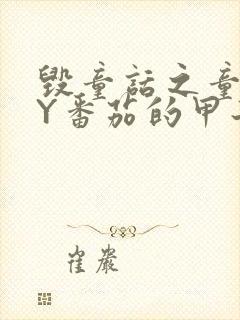 毁童话之童
Y番茄的甲
崔巖